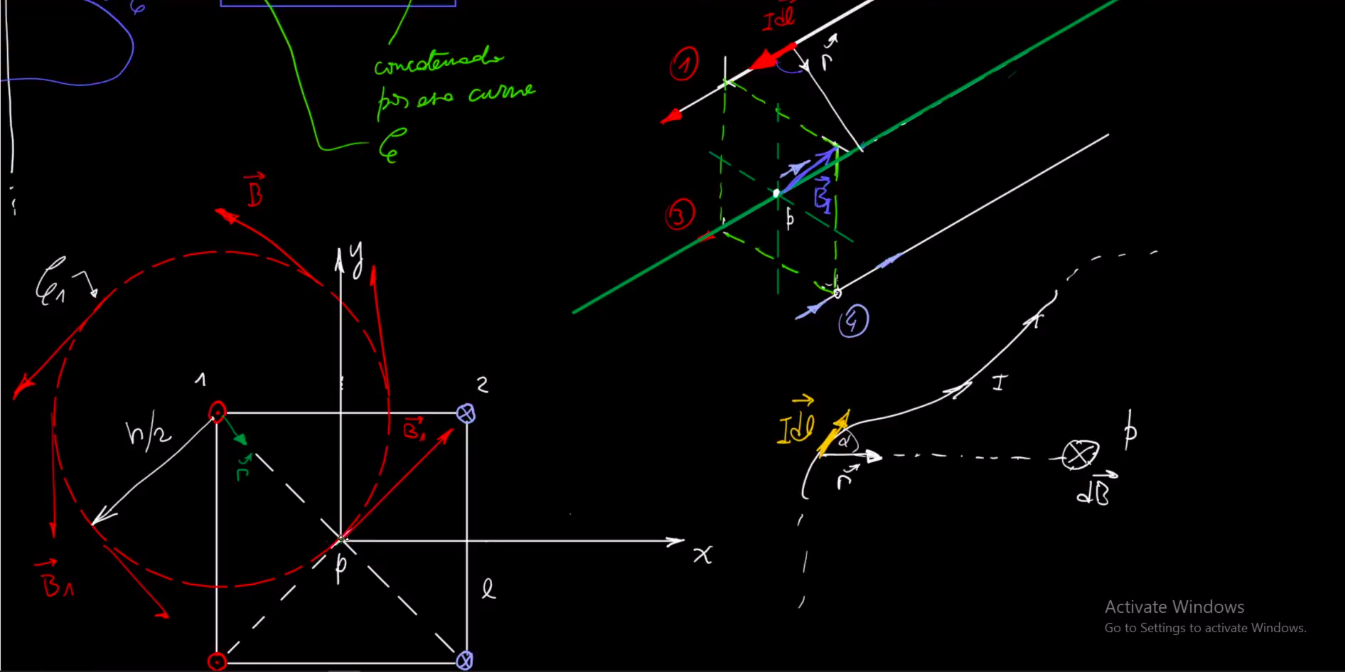 concatenado
por esa curva
C
Idl
r
1
3
B1
p
4
B
C1
y
1
2
h/2
r
B1
B1
p
x
l
I
Idl
α
r
p
dB
Activate Windows
Go to Settings to activate Windows.